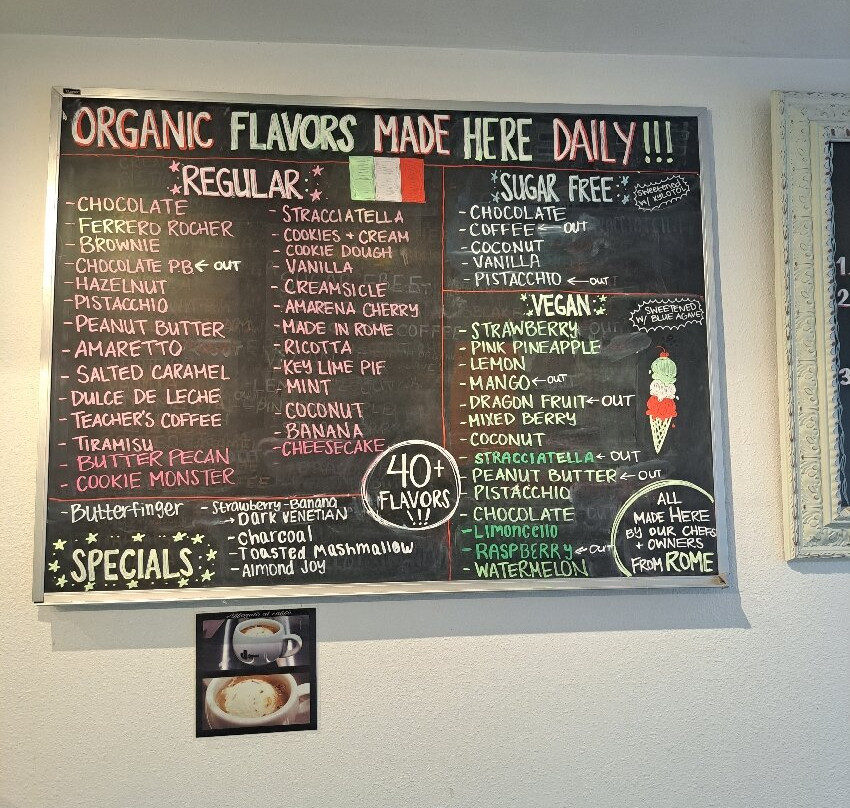 ORGANIC FLAVORS MADE HERE DAILY!!!
REGULAR
- CHOCOLATE
- FERRERO ROCHER
- BROWNIE
- CHOCOLATE PB ← OUT
- HAZELNUT
- PISTACCHIO
- PEANUT BUTTER
- AMARETTO
- SALTED CARAMEL
- DULCE DE LECHE
- TEACHER'S COFFEE
- TIRAMISU
- BUTTER PECAN
- COOKIE MONSTER
- STRACCIATELLA
- COOKIES + CREAM
- COOKIE DOUGH
- VANILLA
- CREAMSICLE
- AMARENA CHERRY
- MADE IN ROME
- RICOTTA
- KEY LIME PIE
- MINT
- COCONUT
- BANANA
- CHEESECAKE
SUGAR FREE
SWEETENED
W/ XYLOTOL
- CHOCOLATE
- COFFEE ← OUT
- COCONUT
- VANILLA
- PISTACCHIO ← OUT
VEGAN
SWEETENED
W/ BLUE AGAVE
- STRAWBERRY
- PINK PINEAPPLE
- LEMON
- MANGO ← OUT
- DRAGON FRUIT ← OUT
- MIXED BERRY
- COCONUT
- STRACCIATELLA ← OUT
- PEANUT BUTTER ← OUT
- PISTACCHIO
- CHOCOLATE
- Limoncello
- RASPBERRY ← OUT
- WATERMELON
40+
FLAVORS
!!!
SPECIALS
- Butterfinger
- Strawberry-Banana
→ DARK VENETIAN
- Charcoal
- Toasted Mashmallow
- Almond Joy
ALL
MADE HERE
BY OUR CHEFS
+ OWNERS
FROM ROME
1
2
3